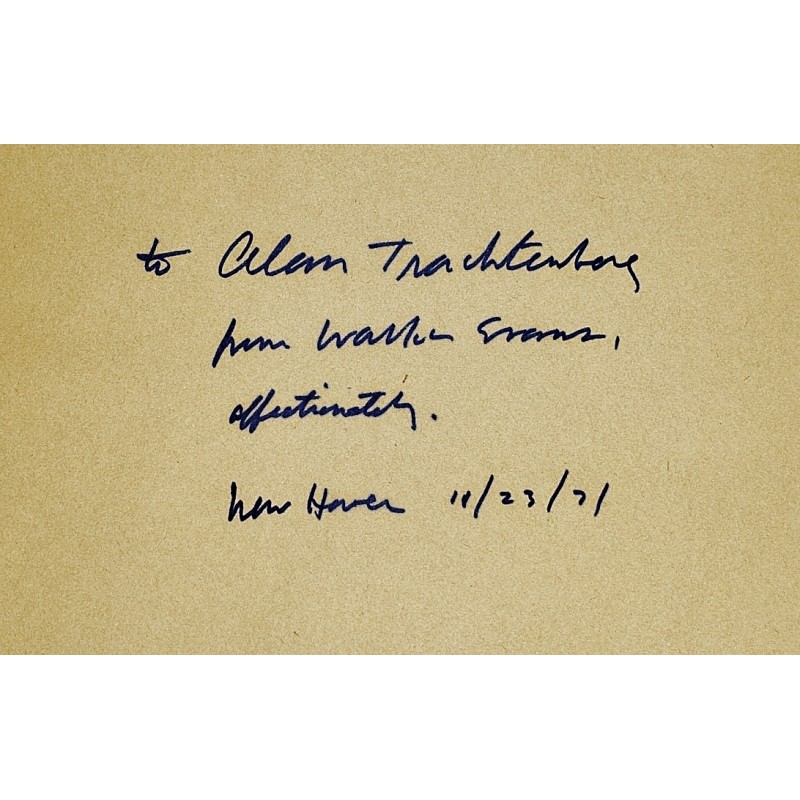 to Alan Trachtenberg
from Walker Evans,
affectionately.
New Haven 11/23/71